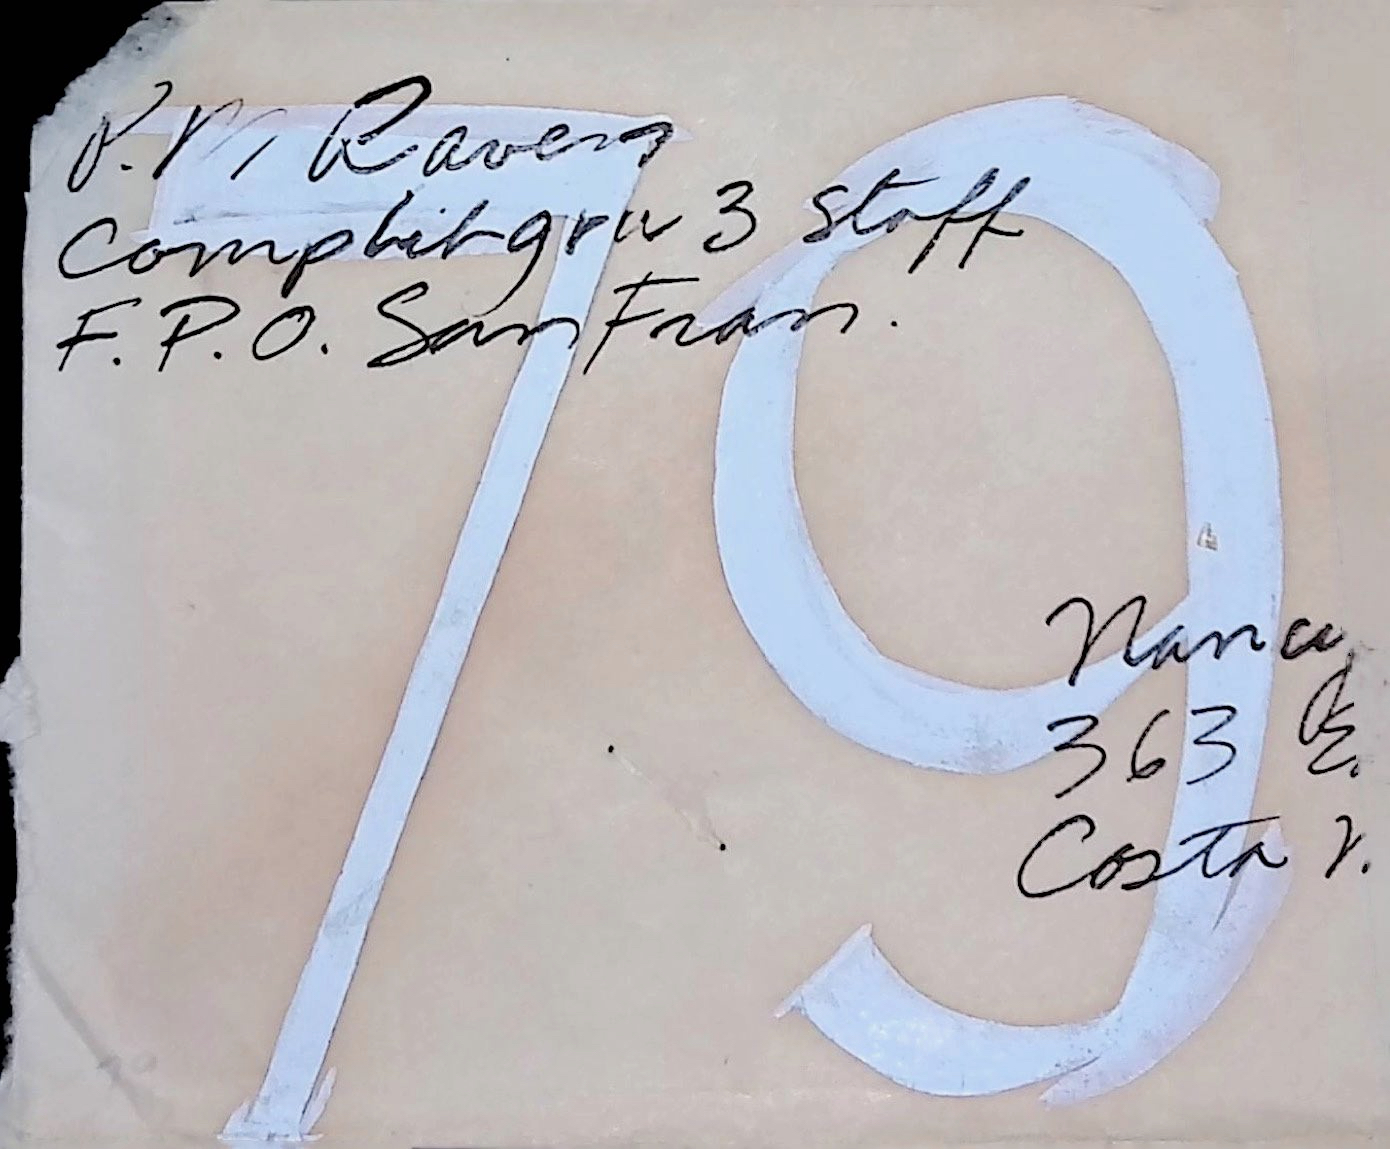 P.M. Ravens
Comphibgru 3 Staff
F.P.O. San Fran.
79
Nancy
363 E.
Costa